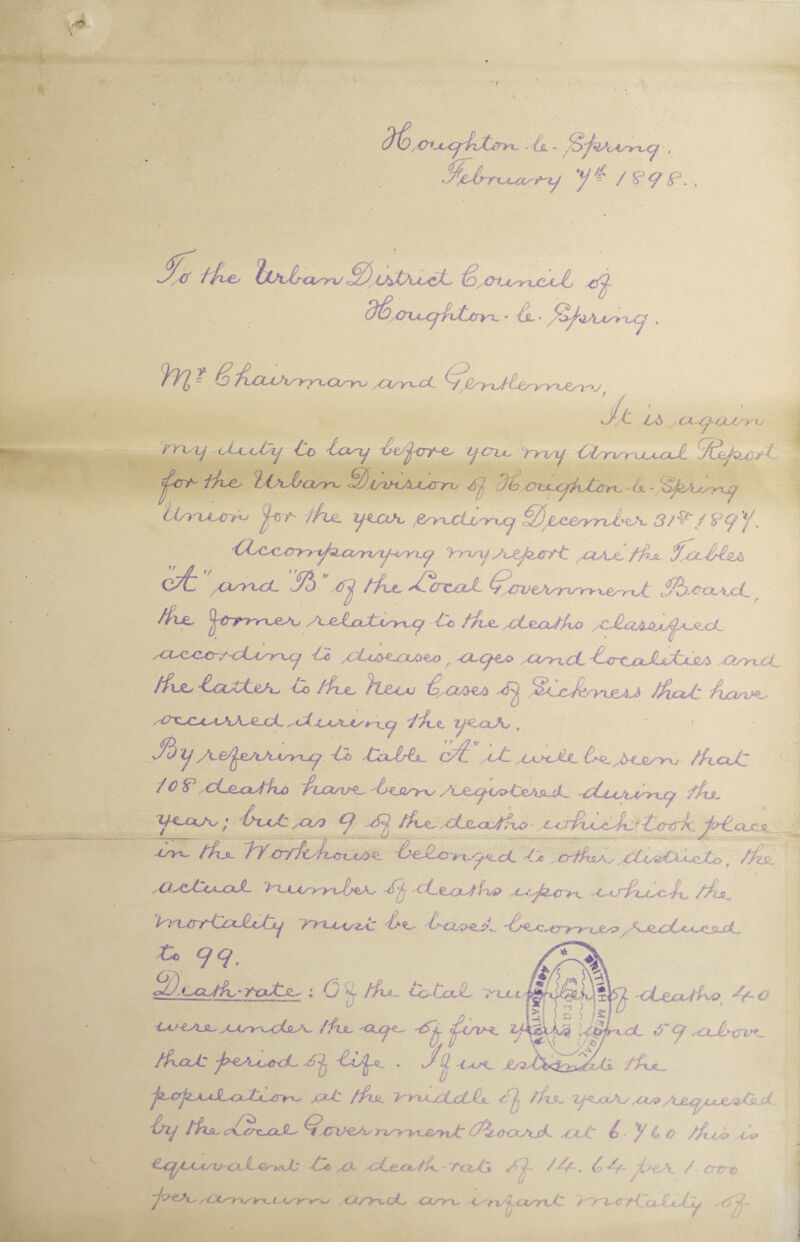 Houghton-le-Spring.
February 7th 1898.
To the Urban District Council of
Houghton-le-Spring.
Mr Chairman and Gentlemen,
It is again
my duty to lay before you my Annual Report
for the Urban Division of Houghton-le-Spring
Union for the year ending December 31st 1897.
Accompanying my report are the Tables
"A" and "B" of the Local Government Board,
the former relating to the deaths classified
according to diseases, ages and localities and
the latter to the New Cases of Sickness that have
occurred during the year.
By referring to table "A" it will be seen that
108 deaths have been registered during the
year; but as 9 of the deaths which took place
in the Workhouse belonged to other districts, the
actual number of deaths upon which the
mortality must be based becomes reduced
to 99.
Death-rate: Of the total number of deaths, 40
were under the age of five years and 59 above
that period of life. If we estimate the
population at the middle of the year as requested
by the Local Government Board at 6760 this is
equivalent to a death-rate of 14.64 per 1000
per annum and an infant mortality of
BRITISH MEDICAL ASSOCIATION